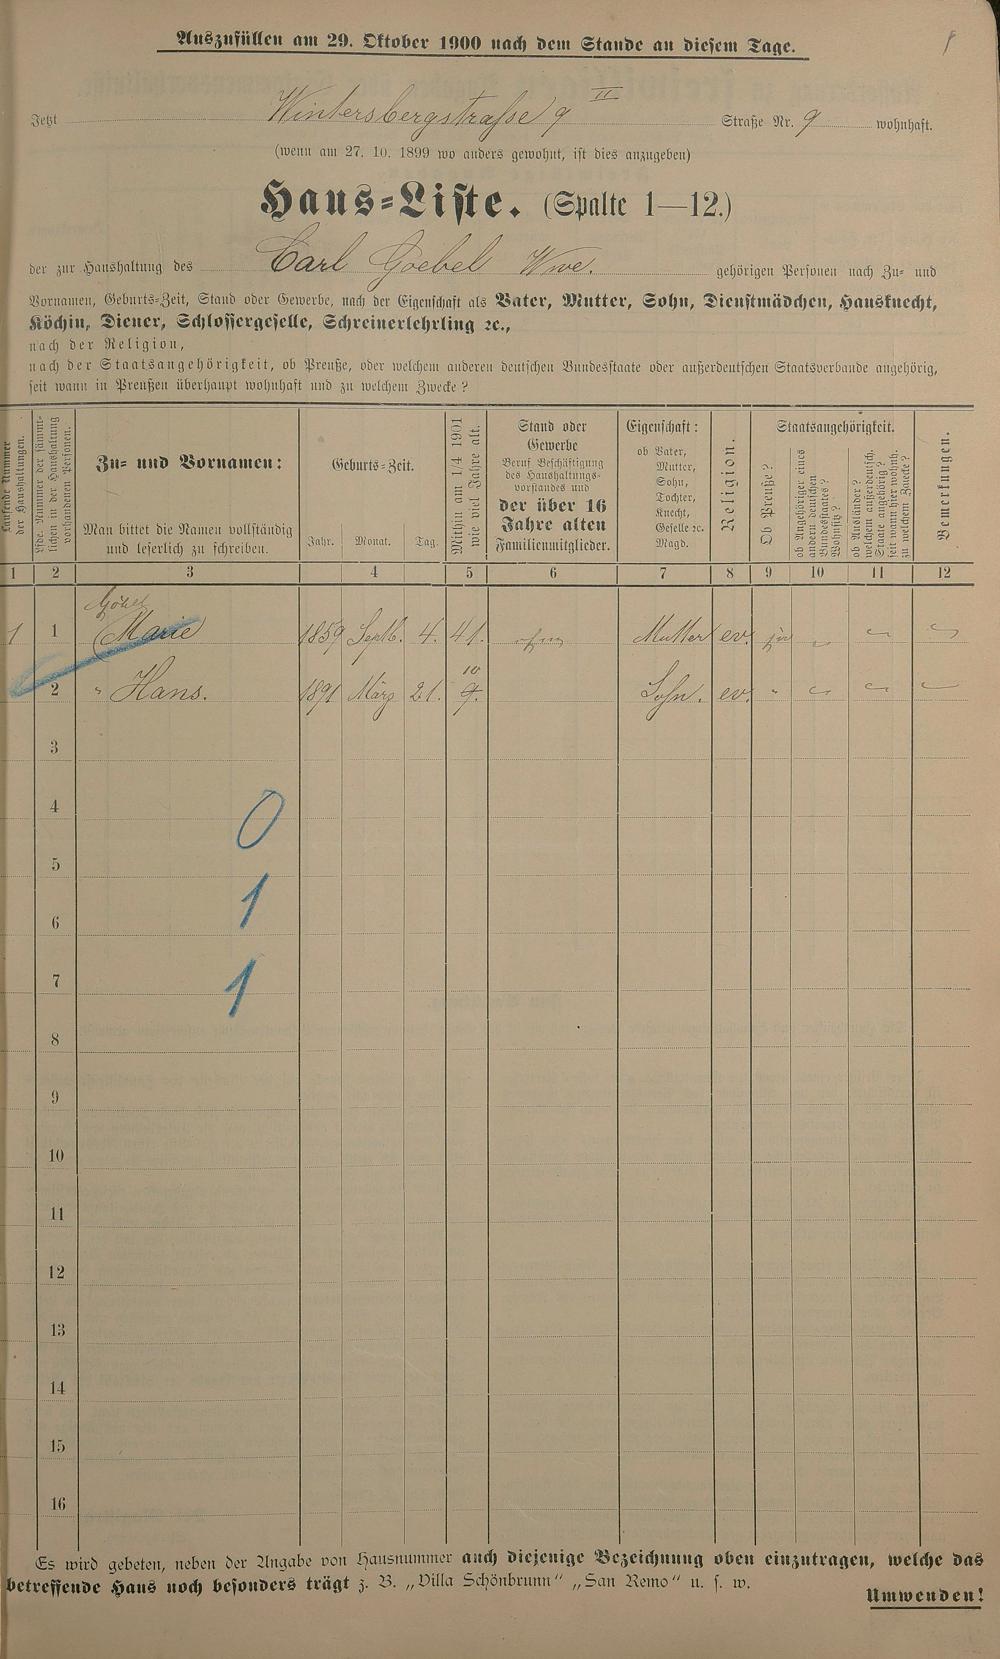 Auszufüllen am 29. Oktober 1900 nach dem Stande an diesem Tage.
Jetzt Wintersbergstraße 9 II Straße Nr. 9 wohnhaft.
(wenn am 27. 10. 1899 wo anders gewohnt, ist dies anzugeben)
Haus-Liste. (Spalte 1—12.)
der zur Haushaltung des Carl Goebel Wwe. gehörigen Personen nach Zu- und
Vornamen, Geburts-Zeit, Stand oder Gewerbe, nach der Eigenschaft als Vater, Mutter, Sohn, Dienstmädchen, Hausknecht,
Köchin, Diener, Schlossergeselle, Schreinerlehrling ꝛc.,
nach der Religion,
nach der Staatsangehörigkeit, ob Preuße, oder welchem anderen deutschen Bundesstaate oder außerdeutschen Staatsverbande angehörig,
seit wann in Preußen überhaupt wohnhaft und zu welchem Zwecke?
Laufende Nummer
der Haushaltungen.
Lfde. Nummer der sämmt-
lichen in der Haushaltung
vorhandenen Personen.
Zu- und Vornamen:
Man bittet die Namen vollständig
und leserlich zu schreiben.
Geburts-Zeit.
Jahr. Monat. Tag.
Mithin am 1/4 1901
wie viel Jahre alt.
Stand oder
Gewerbe
Beruf Beschäftigung
des Haushaltungs-
vorstandes und
der über 16
Jahre alten
Familienmitglieder.
Eigenschaft:
ob Vater,
Mutter,
Sohn,
Tochter,
Knecht,
Geselle ꝛc.
Magd.
Religion.
Staatsangehörigkeit.
Ob Preuße?
ob Angehöriger eines
andern deutschen
Bundesstaates?
Wohnsitz?
ob Ausländer?
welchem außerdeutsch.
Staate angehörig?
seit wann hier wohnh.
zu welchem Zwecke?
Bemerkungen.
1 2 3 4 5 6 7 8 9 10 11 12
Göbel
1 1 Marie 1859 Septb. 4. 41. ohne Mutter ev. ja
10
2 " Hans. 1891 März 21. 9. Sohn. ev. "
3
4 0
5
6 1
7 1
8
9
10
11
12
13
14
15
16
Es wird gebeten, neben der Angabe von Hausnummer auch diejenige Bezeichnung oben einzutragen, welche das
betreffende Haus noch besonders trägt z. B. „Villa Schönbrunn" „San Remo" u. s. w.
Umwenden!